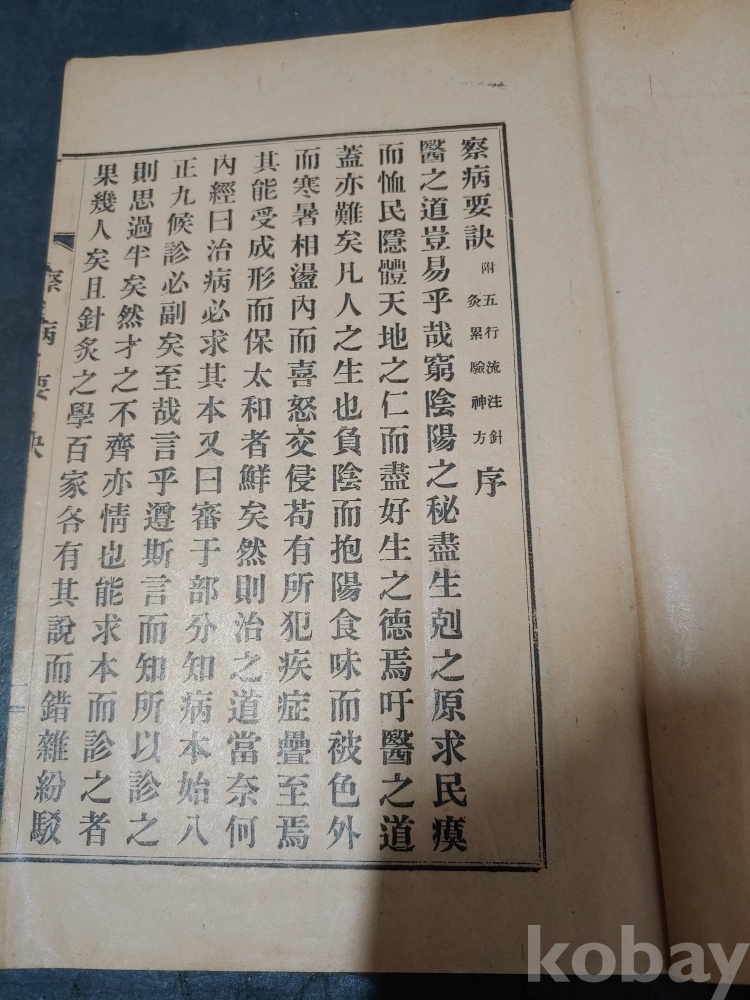 察病要訣 附五行流注針灸累驗神方 序
醫之道豈易乎哉窮陰陽之秘盡生剋之原求民瘼
而恤民隱體天地之仁而盡好生之德焉吁醫之道
蓋亦難矣凡人之生也負陰而抱陽食味而被色外
而寒暑相盪內而喜怒交侵苟有所犯疾症疊至焉
其能受成形而保太和者鮮矣然則治之道當奈何
內經曰治病必求其本又曰審于部分知病本始八
正九候診必副矣至哉言乎遵斯言而知所以診之
則思過半矣然才之不齊亦情也能求本而診之者
果幾人矣且針炙之學百家各有其說而錯雜紛駁
察病要訣
kobay